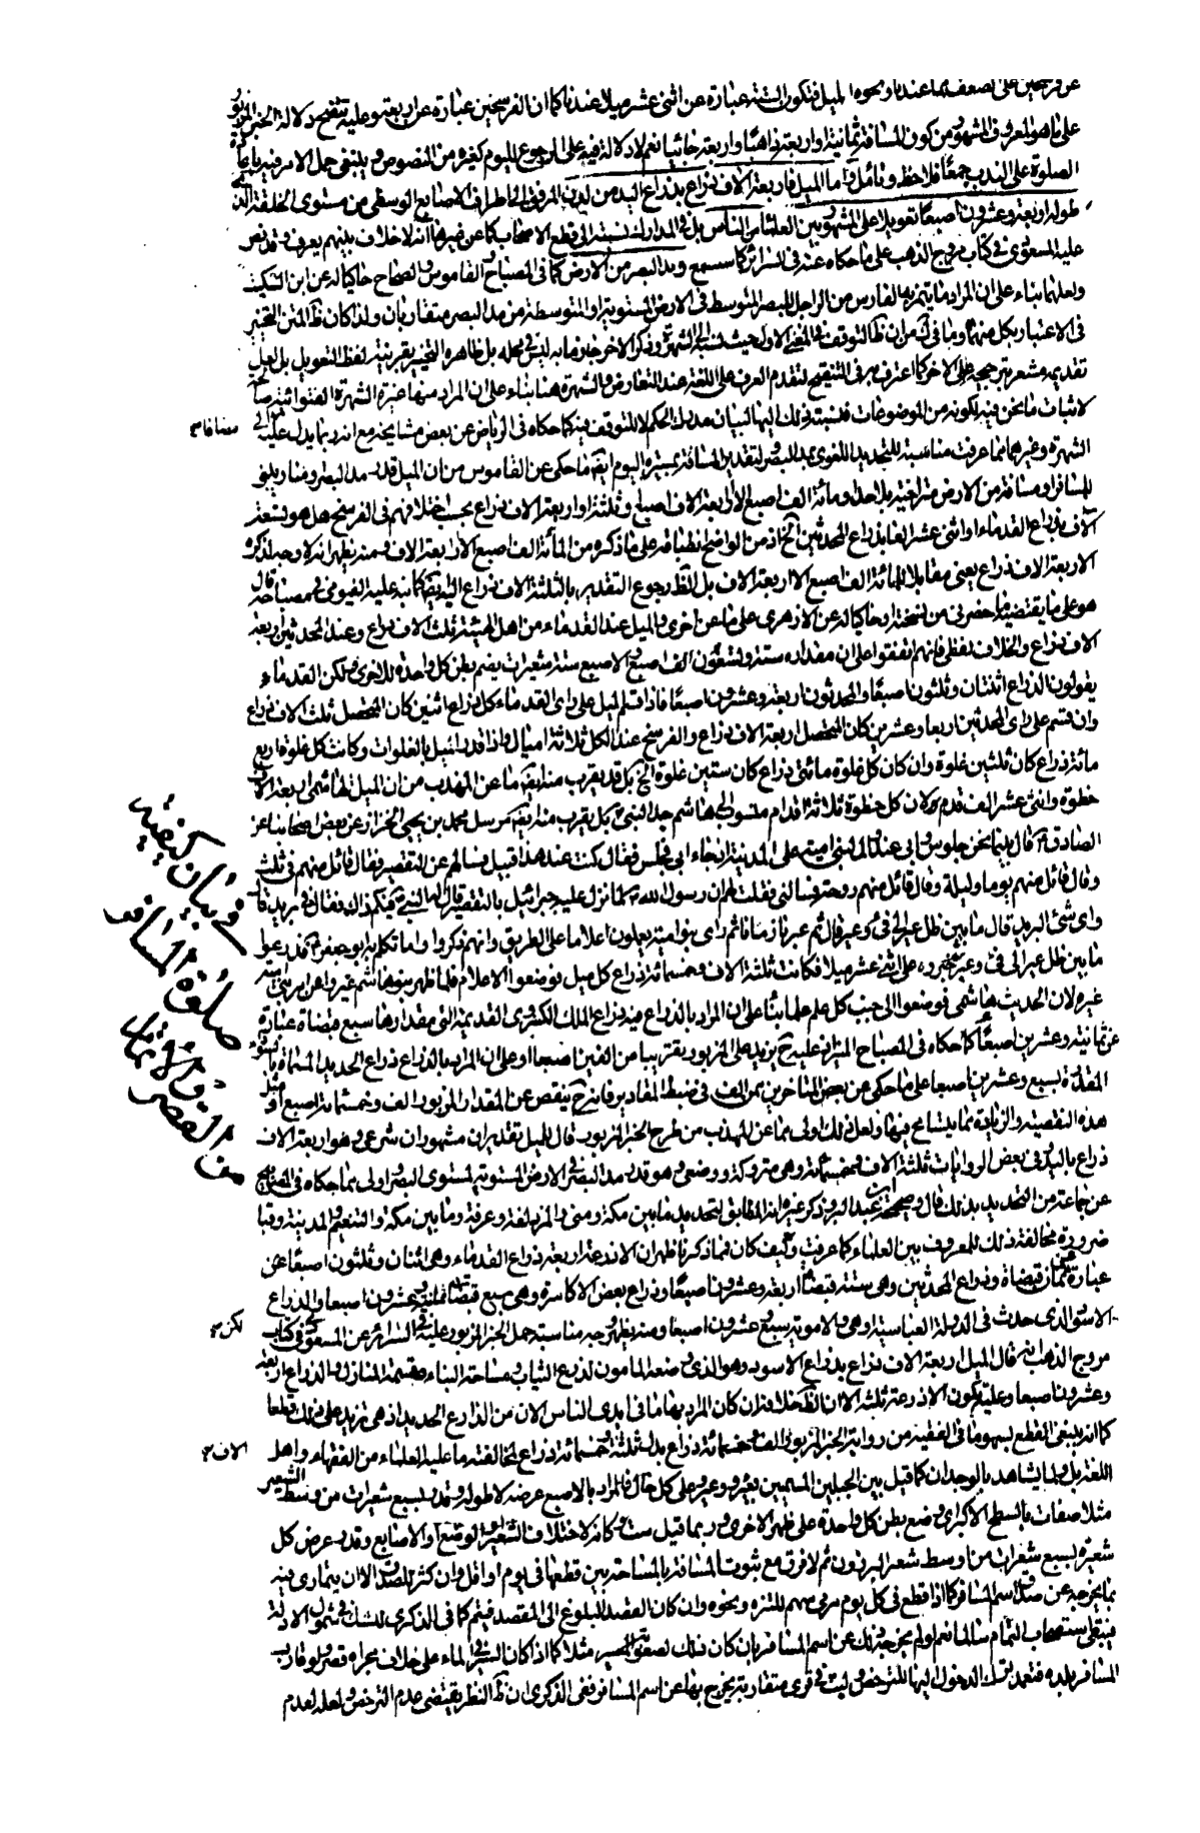 عن فرسخين على ضعف ما عندنا ونحوه الميل فتكون الستة عبارة عن اثنى عشر ميلا عندنا كما ان الفرسخين عبارة عن اربعة وعليه تتضح دلالة الخبر المزبور
على ما هو المعروف المشهور من كون المسافة ثمانية او اربعة ذاهبا واربعة جائيا نعم لا دلالة فيه على الرجوع لليوم كغيره من النصوص وينبغى حمل الامر فيه باعادة
الصلوة على الندب جمعا فلاحظ وتامل واما الميل فاربعة الاف ذراع بذراع اليد من لدن المرفق الى اطراف الاصابع الوسطى من مستوى الخلقة الذى
طوله اربعة وعشرون اصبعا تعويلا على المشهور بين العلماء والناس بل فى المدارك نسبته الى قطع الاصحاب كما عن غيرها انه لا خلاف بينهم يعرف وقد نص
عليه المسعودى فى كتاب مروج الذهب على ما حكاه عنه فى السرائر كما ستسمع ومد البصر من الارض كما فى المصباح والقاموس والصحاح حاكيا له عن ابن السكيت
ولعلهما بناء على ان المراد ما يتميز به الفارس من الراجل للبصر المتوسط فى الارض المستوية او المتوسطة من مد البصر متقاربان ولذا كان ظ المتن التخيير
فى الاعتبار بكل منهما وما فى ك من ان ظ التوقف فى المعنى الاول حيث نسبه الى الشهرة وذكر الاخر جازما به ليس فى محله بل ظاهره التخيير بقرينة لفظ التعويل بل لعل
تقديمه مشعر بترجيحه على الاخر كما اعترف به فى التنقيح لتقدم العرف على اللغة عند التعارض والشهرة هنا بناء على ان المراد منها غير الشهرة الفتوائية صالحة
لاثبات ما نحن فيه لكونه من الموضوعات فنسبته ذلك اليها لبيان مدرك الحكم لا للتوقف فيه كما حكاه فى الرياض عن بعض مشايخه مع انه ربما يدل عليه
مضافا
الى
الشهرة وغيرها مما عرفت مناسبته للتحديد اللغوى بمد البصر ولتقدير المسافة بمسير اليوم ايضا ما حكى عن القاموس من ان الميل قدر مد البصر ومنار يبنى
للمسافر او مسافة من الارض متراخية بلا حد او مائة الف اصبع الا اربعة الاف اصبع او ثلثة او اربعة الاف ذراع بحسب اختلافهم فى الفرسخ هل هو تسعة
آلاف بذراع القدماء او اثنى عشر الفا بذراع المحدثين الخ اذ من الواضح انطباقه على ما ذكروه من المائة الف اصبع الا اربعة الاف ومنه يظهر انه لا وجه لذكره
الاربعة الاف ذراع يعنى مقابلا للمائة الف اصبع الا اربعة الاف بل الظ رجوع التقدير بالثلثة الاف ذراع اليه ايضا كما نبه عليه الفيومى فى مصباحه قال
هو على ما يقتضيه ما حضرنى من نسخته او حاكيا له عن الازهرى على ما عن اخرى والميل عند القدماء من اهل الهيئة ثلث الاف ذراع وعند المحدثين اربعة
الاف ذراع والخلاف لفظى فانهم اتفقوا على ان مقداره ستة وتسعون الف اصبع والاصبع ستة شعيرات يضم بطن كل واحدة للاخرى ولكن القدماء
يقولون الذراع اثنتان وثلثون اصبعا والمحدثون اربعة وعشرون اصبعا فاذا قسم الميل على راى القدماء كل ذراع اثنين كان المتحصل ثلث الاف ذراع
وان قسم على راى المحدثين اربعا وعشرين كان المتحصل اربعة الاف ذراع والفرسخ عند الكل ثلاثة اميال واذا قدر الميل بالغلوات وكانت كل غلوة اربع
مائة ذراع كان ثلثين غلوة وان كان كل غلوة مائتى ذراع كان ستين غلوة الخ بل قد يقرب منه ايضا ما عن المهذب من ان الميل الهاشمى اربعة الاف
خطوة واثنى عشر الف قدم لان كل خطوة ثلاثة اقدام منسوب الى هاشم جد النبى بل يقرب منه ايضا مرسل محمد بن يحيى الخزاز عن بعض اصحابنا عن
الصادق قال بينما نحن جلوس وابى عند وال لبنى امية على المدينة اذ جاء ابى فجلس فقال كنت عند هذا قبيل فسألهم عن التقصير فقال قائل منهم فى ثلث
وقال قائل منهم يوما وليلة وقال قائل منهم روحة فسالنى فقلت لهم ان رسول الله لما نزل عليه جبرائيل بالتقصير قال له النبى فى كم ذاك فقال فى بريد قال
واى شئ البريد قال ما بين ظل عير الى فئ وعير قال ثم عبرنا زمانا ثم راى بنو امية يعملون اعلاما على الطريق وانهم ذكروا واما تكلم به ابو جعفر فذرعوا
ما بين ظل عير الى فئ وعير ثم جزوه على اثنى عشر ميلا فكانت ثلثة الاف وخمسمائة ذراع كل ميل فوضعوا الاعلام فلما ظهر بنو هاشم غيروا امر بنى امية
غيرة لان الحديث هاشمى فوضعوا الى جنب كل علم علما بناء على ان المراد بالذراع فيه ذراع الملك الكسروى القديمة التى مقدارها سبع قبضات عبارة
عن ثمانية وعشرين اصبعا كما حكاه فى المصباح المنير اذ عليه ح يزيد على المزبور تقريبا من الفين اصبعا او على ان المراد بالذراع ذراع الحديد المسماة بالسوداء
المقدرة بسبع وعشرين اصبعا على ما حكى عن بعض المتاخرين ممن الف فى ضبط المقادير فانه ح ينقص عن المقدار المزبور الف وخمسمائة اصبع او مثل
هذه النقيصة والزيادة مما يتسامح فيها ولعل ذلك اولى مما عن المهذب من طرح الخبر المزبور قال للميل تقديران مشهوران شرعى وهو اربعة الاف
ذراع باليد وفى بعض الروايات ثلثة الاف وخمسمائة وهى متروكة ووضعى وهو قدر مد البصر فى الارض المستوية لمستوى البصر اولى مما حكاه فى المصابيح
عن جماعة من التحديد بذلك قال وصححه ابن عبد البر وذكر غيره انه المطابق لتحديد ما بين مكة ومنى والمزدلفة وعرفة وما بين مكة والتنعيم والمدينة وقبا
ضرورة مخالفة ذلك للمعروف بين العلماء كما عرفت وكيف كان فما ذكرنا ظهر ان الاذرعة اربعة ذراع القدماء وهى اثنان وثلثون اصبعا عن
عبارة ثمان قبضات وذراع المحدثين وهى ستة قبضات اربعة وعشرون اصبعا وذراع بعض الاكاسرة وهى سبع قبضات ثمانية وعشرون اصبعا والذراع
الاسود الذى حدث فى الدولة العباسية وهى والاموية سبع وعشرون اصبعا ومنه يظهر وجه مناسبة حمل الخبر المزبور عليه فى السرائر عن المسعودى فى كتاب
لكن
مروج الذهب انه قال الميل اربعة الاف ذراع بذراع الاسود وهو الذى وضعه المامون لذرع الثياب ومساحة البناء وقسمة المنازل والذراع اربعة
وعشرون اصبعا وعليه يكون الاذرعة ثلثة الا ان الظ خلافه ان كان المراد بها ما فى ايدى الناس الان من الذراع الحديد اذ هى تزيد على ذلك قطعا
كما انه ينبغى القطع بسهو ما فى الفقيه من رواية الخبر المزبور الف وخمسمائة ذراع بدل ثلثة وخمسمائة ذراع لمخالفته ما عليه العلماء من الفقهاء واهل
الاف
اللغة بل ولما يشاهد بالوجدان كما قيل بين الجبلين المسميين بعير ووعير وعلى كل حال فالمراد بالاصبع عرضه لا طوله وقدر بسبع شعيرات من وسط الشعير
متلاصقات بالسطح الاكبر اى وضع بطن كل واحدة على ظهر الاخرى وربما قيل ست وكانه لاختلاف الشعير او لوضع او الاصابع وقدر عرض كل
شعيرة بسبع شعرات من اوسط شعر البرذون ثم لا فرق مع ثبوت المسافة بالمساحة بين قطعها فى يوم او اقل وان كثر للصدق الا ان يتمارى فيه
بما يخرجه عن صدق اسم المسافر كما اذا قطع فى كل يوم مرمى سهم للتنزه ونحوه وان كان القصد البلوغ الى المقصد فيتم كما فى الذكرى للشك فى شمول الادلة
فيبقى استصحاب التمام سالما نعم لو لم يخرجه ذلك عن اسم المسافر بان كان ذلك لصعوبة السير مثلا كما اذا كان السير فى الماء على خلاف مجراه قصر ولو قارب
المسافر بلده فتعمد ترك الدخول اليها للترخص ولبث فى قرى متقاربة يخرج بها عن اسم المسافر ففى الذكرى ان ظ النظر يقتضى عدم الترخص ولعله لعدم
فى بيان كيفية
صلوة المسافر
من القصر والاتمام